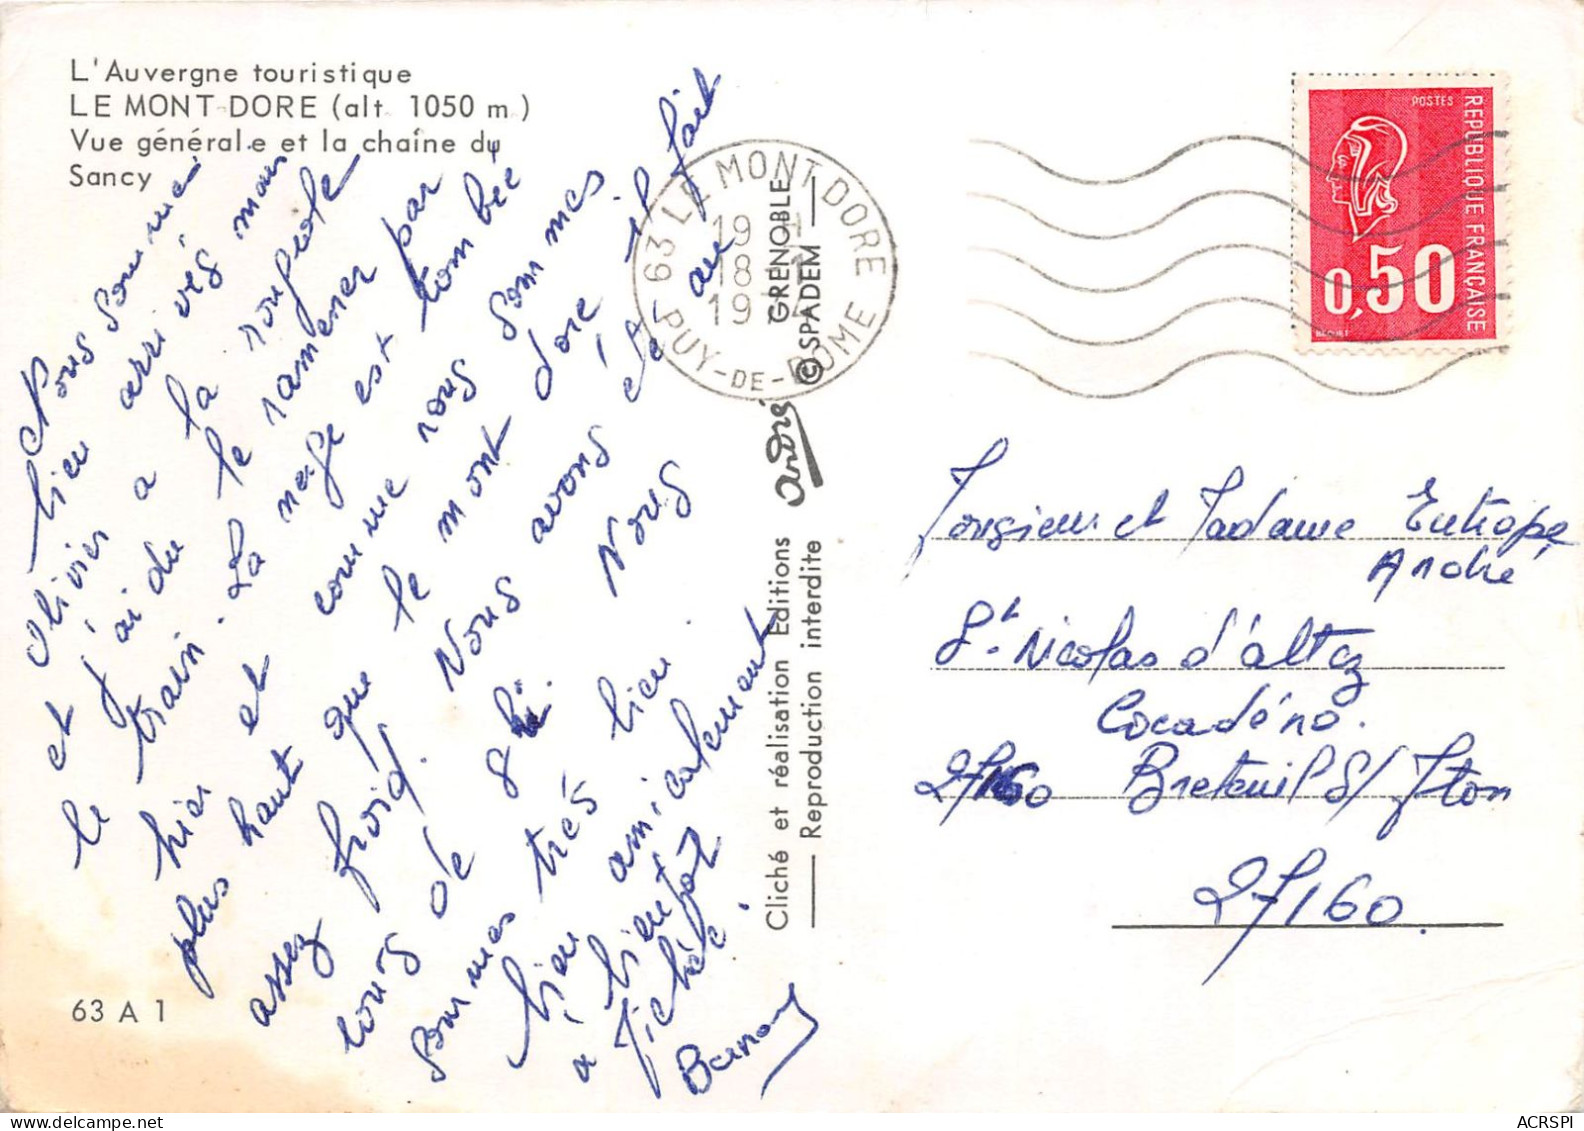 L'Auvergne touristique
LE MONT-DORE (alt. 1050 m.)
Vue générale et la chaîne du
Sancy
Nous sommes
bien arrivés mais
Olivier a la rougeole
et j'ai du le ramener par
le train. La neige est tombée
hier et comme nous sommes
plus haut que le mont dore il fait
assez froid. Nous avons été au
cours de ski. Nous
sommes très bien
bien amicalement
a bientot
Michèle
Bernard
63 A 1
Cliché et réalisation Editions André GRENOBLE
Reproduction interdite © SPADEM
63 LE MONT DORE
19 H
18
19
PUY-DE-DOME
POSTES
REPUBLIQUE FRANÇAISE
0,50
BEQUET
Monsieur et Madame Eutrope
André
St Nicolas d'attez
Cocadéno.
27160 Breteuil S/ Iton
27160
ACRSPI